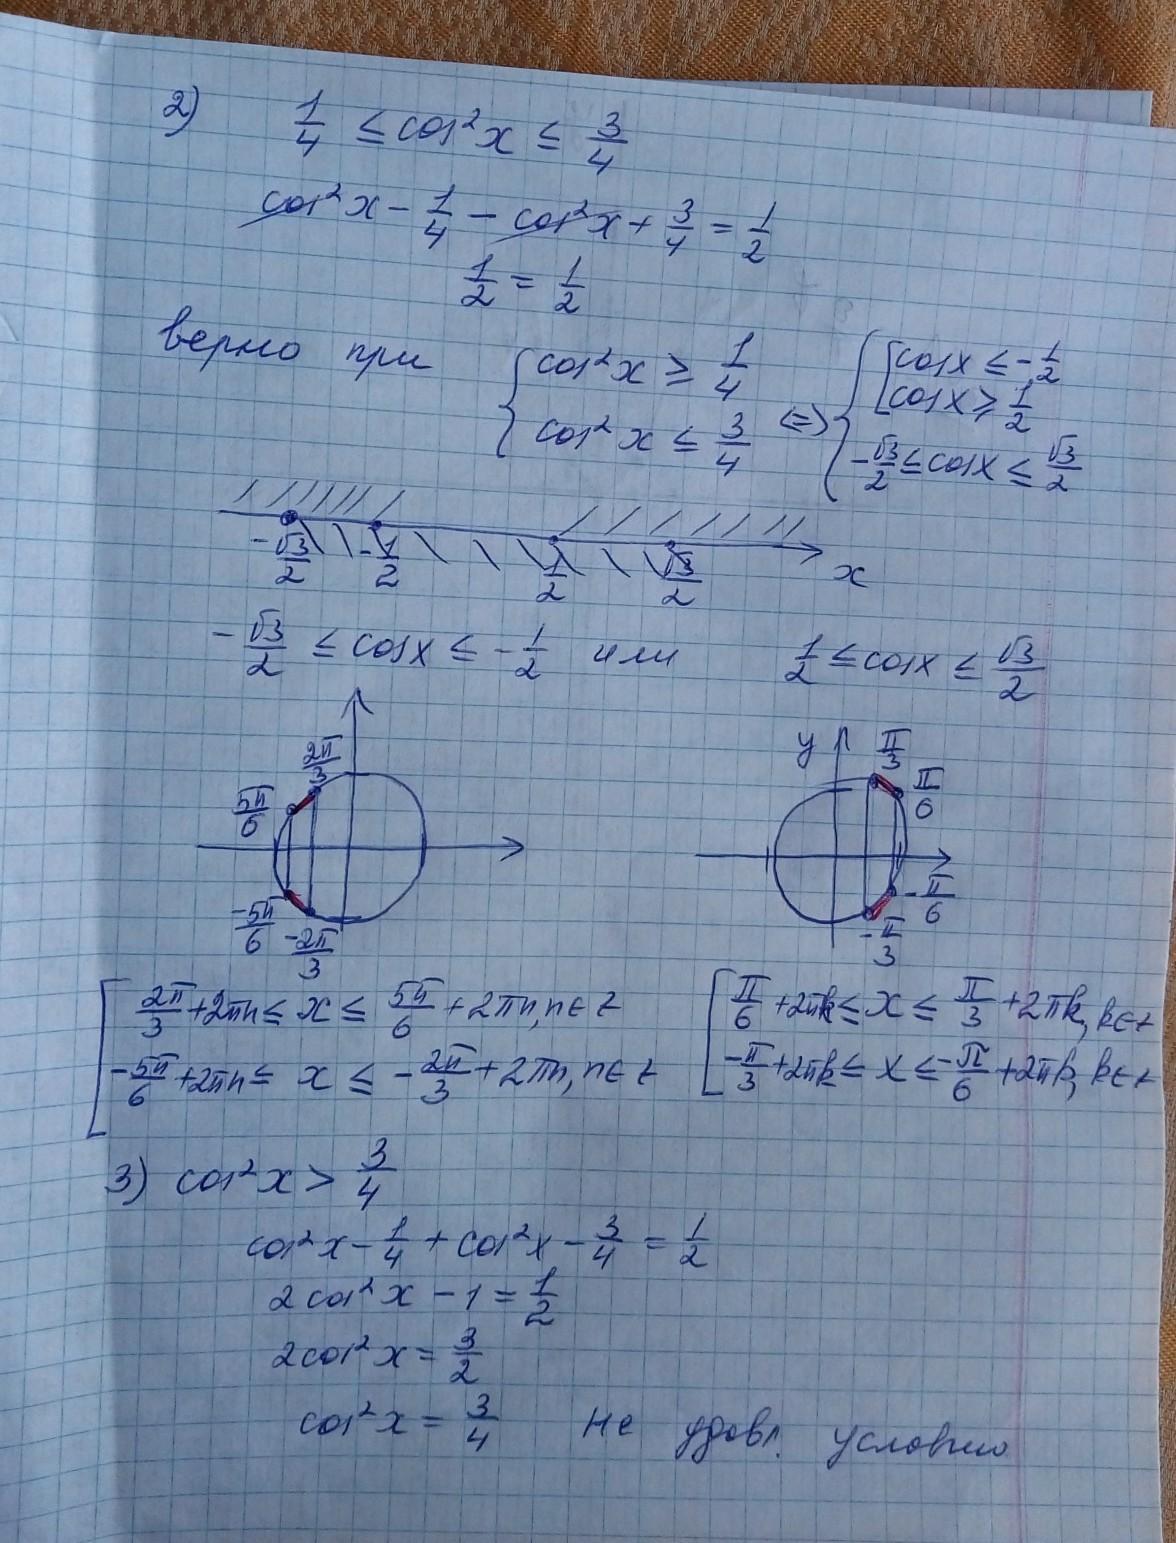 2) 1/4 ≤ cos²x ≤ 3/4
cos²x - 1/4 - cos²x + 3/4 = 1/2
1/2 = 1/2
верно при { cos²x ≥ 1/4 <=> { [ cosx ≤ -1/2
cosx ≥ 1/2
cos²x ≤ 3/4
-√3/2 ≤ cosx ≤ √3/2
-√3/2 -1/2 1/2 √3/2 x
-√3/2 ≤ cosx ≤ -1/2 или 1/2 ≤ cosx ≤ √3/2
2π/3 y π/3
5π/6 π/6
-5π/6 -π/6
-2π/3 -π/3
[ 2π/3 + 2πn ≤ x ≤ 5π/6 + 2πn, n∈z [ π/6 + 2πk ≤ x ≤ π/3 + 2πk, k∈z
-5π/6 + 2πn ≤ x ≤ -2π/3 + 2πn, n∈z -π/3 + 2πk ≤ x ≤ -π/6 + 2πk, k∈z
3) cos²x > 3/4
cos²x - 1/4 + cos²x - 3/4 = 1/2
2cos²x - 1 = 1/2
2cos²x = 3/2
cos²x = 3/4 не удовл. условию